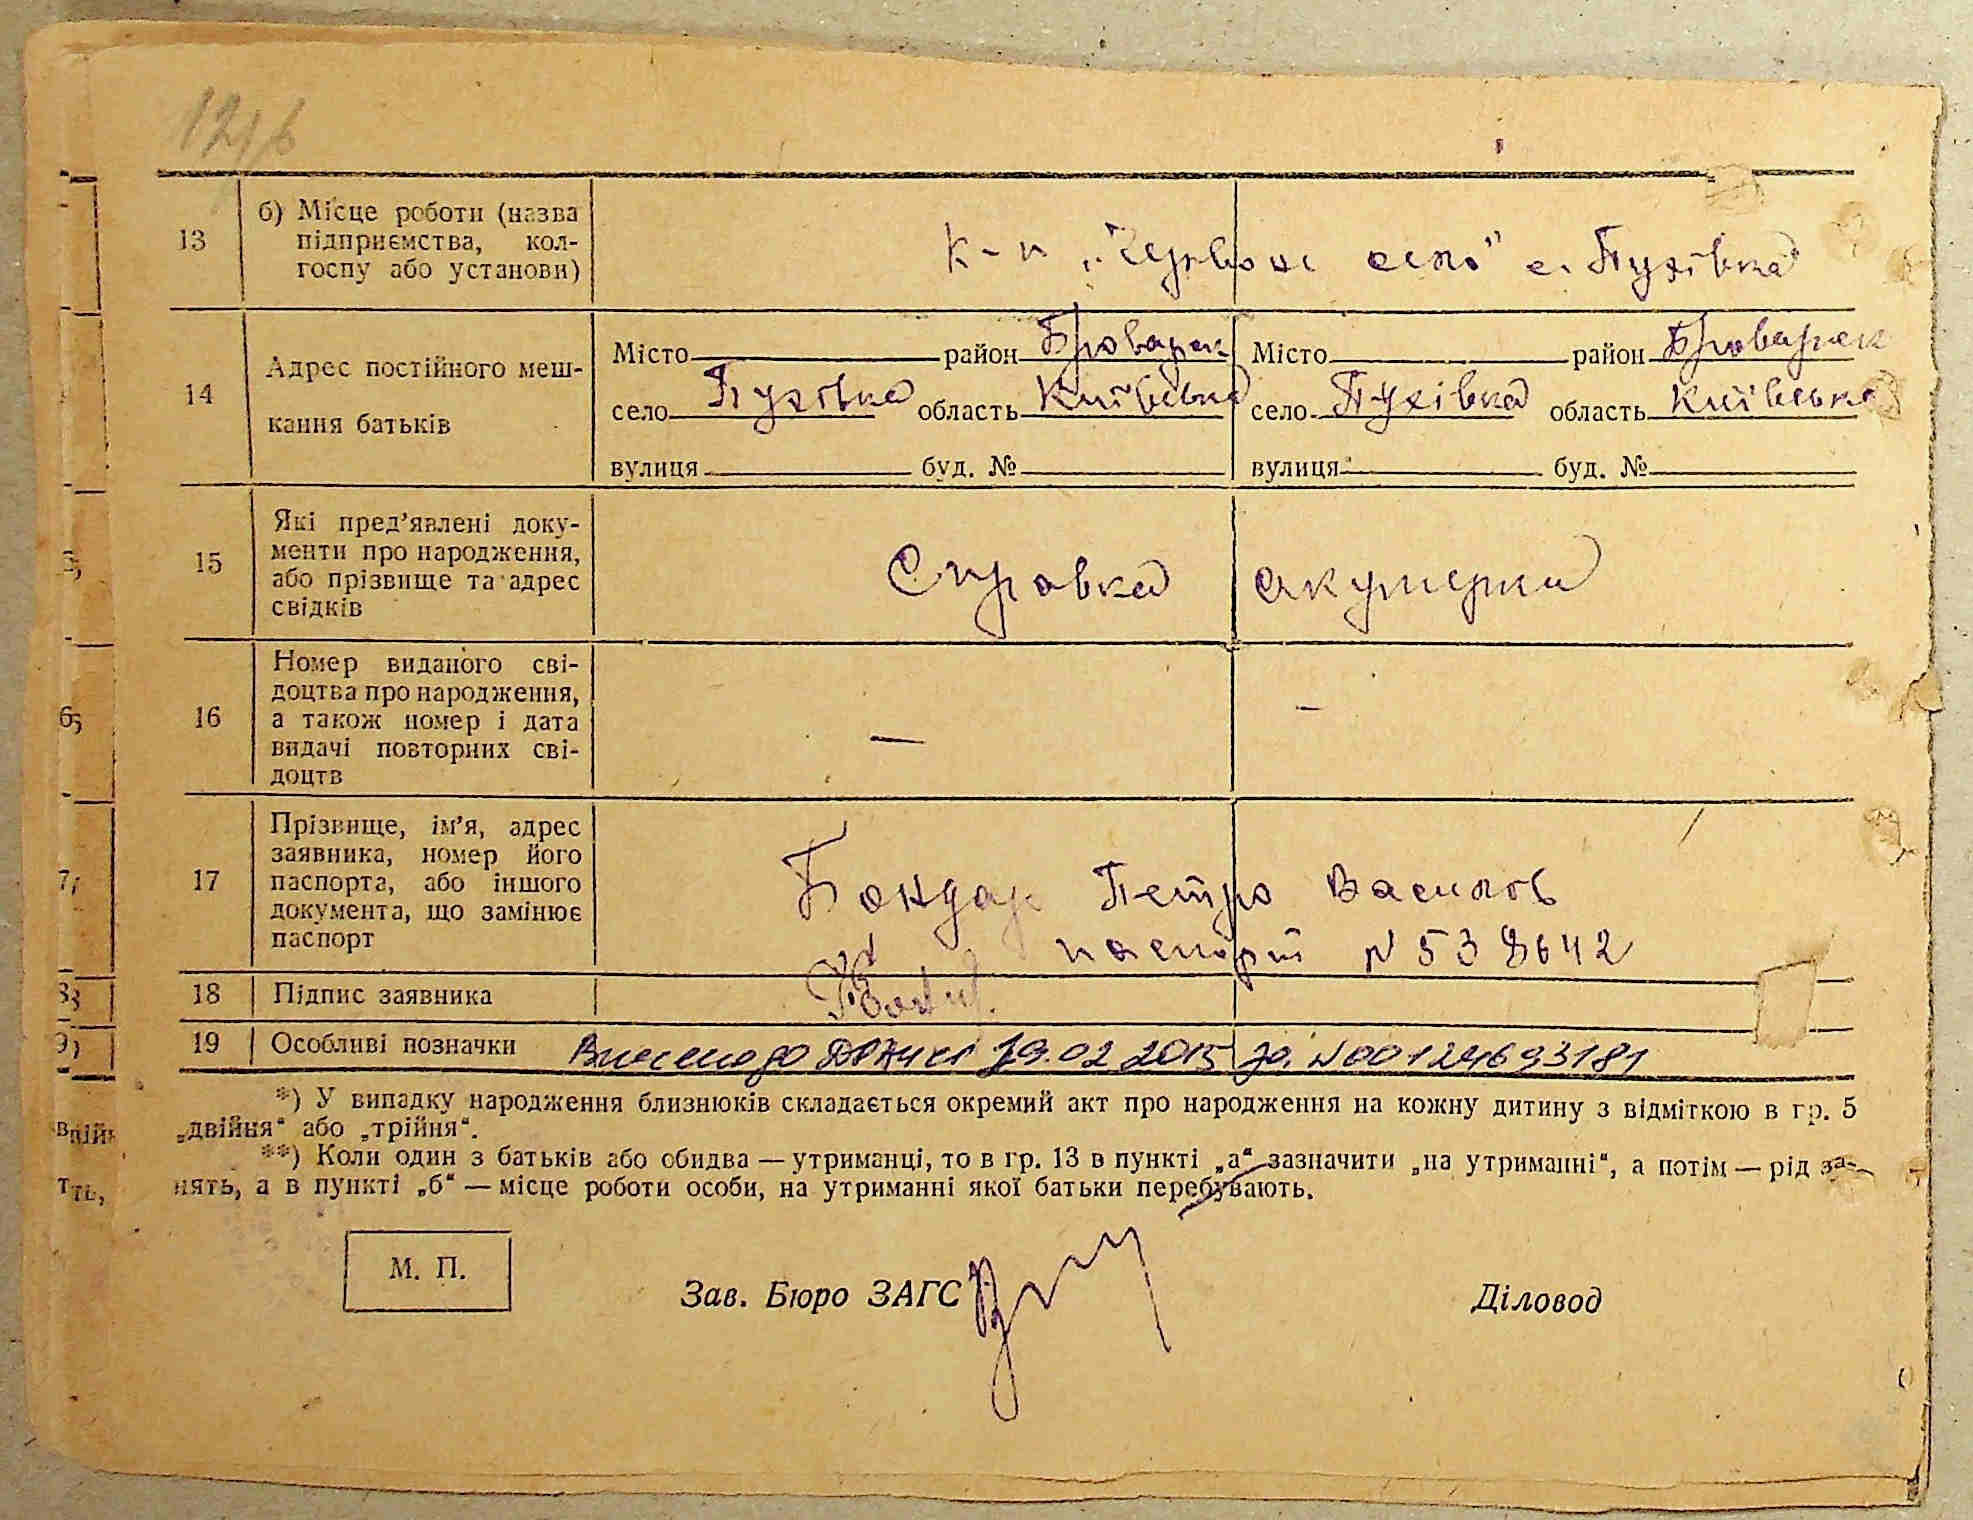 13 б) Місце роботи (назва
підприємства, кол-
госпу або установи)
к-п „Червоне село" с. Пухівка
14 Адрес постійного меш-
кання батьків
Місто район Броварськ Місто район Броварськ
село Пухівка область Київська село Пухівка область Київська
вулиця буд. № вулиця буд. №
15 Які пред'явлені доку-
менти про народження,
або прізвище та адрес
свідків
Справка акушерки
16 Номер виданого сві-
доцтва про народження,
а також номер і дата
видачі повторних сві-
доцтв
— —
17 Прізвище, ім'я, адрес
заявника, номер його
паспорта, або іншого
документа, що замінює
паспорт
Бондар Петро Василів
паспорт № 538642
18 Підпис заявника
19 Особливі позначки Внесено до ДРАЦС 19.02 2015 за № 00124693181
*) У випадку народження близнюків складається окремий акт про народження на кожну дитину з відміткою в гр. 5
„двійня" або „трійня".
**) Коли один з батьків або обидва — утриманці, то в гр. 13 в пункті „а" зазначити „на утриманні", а потім — рід за-
нять, а в пункті „б" — місце роботи особи, на утриманні якої батьки перебувають.
М. П.
Зав. Бюро ЗАГС Діловод